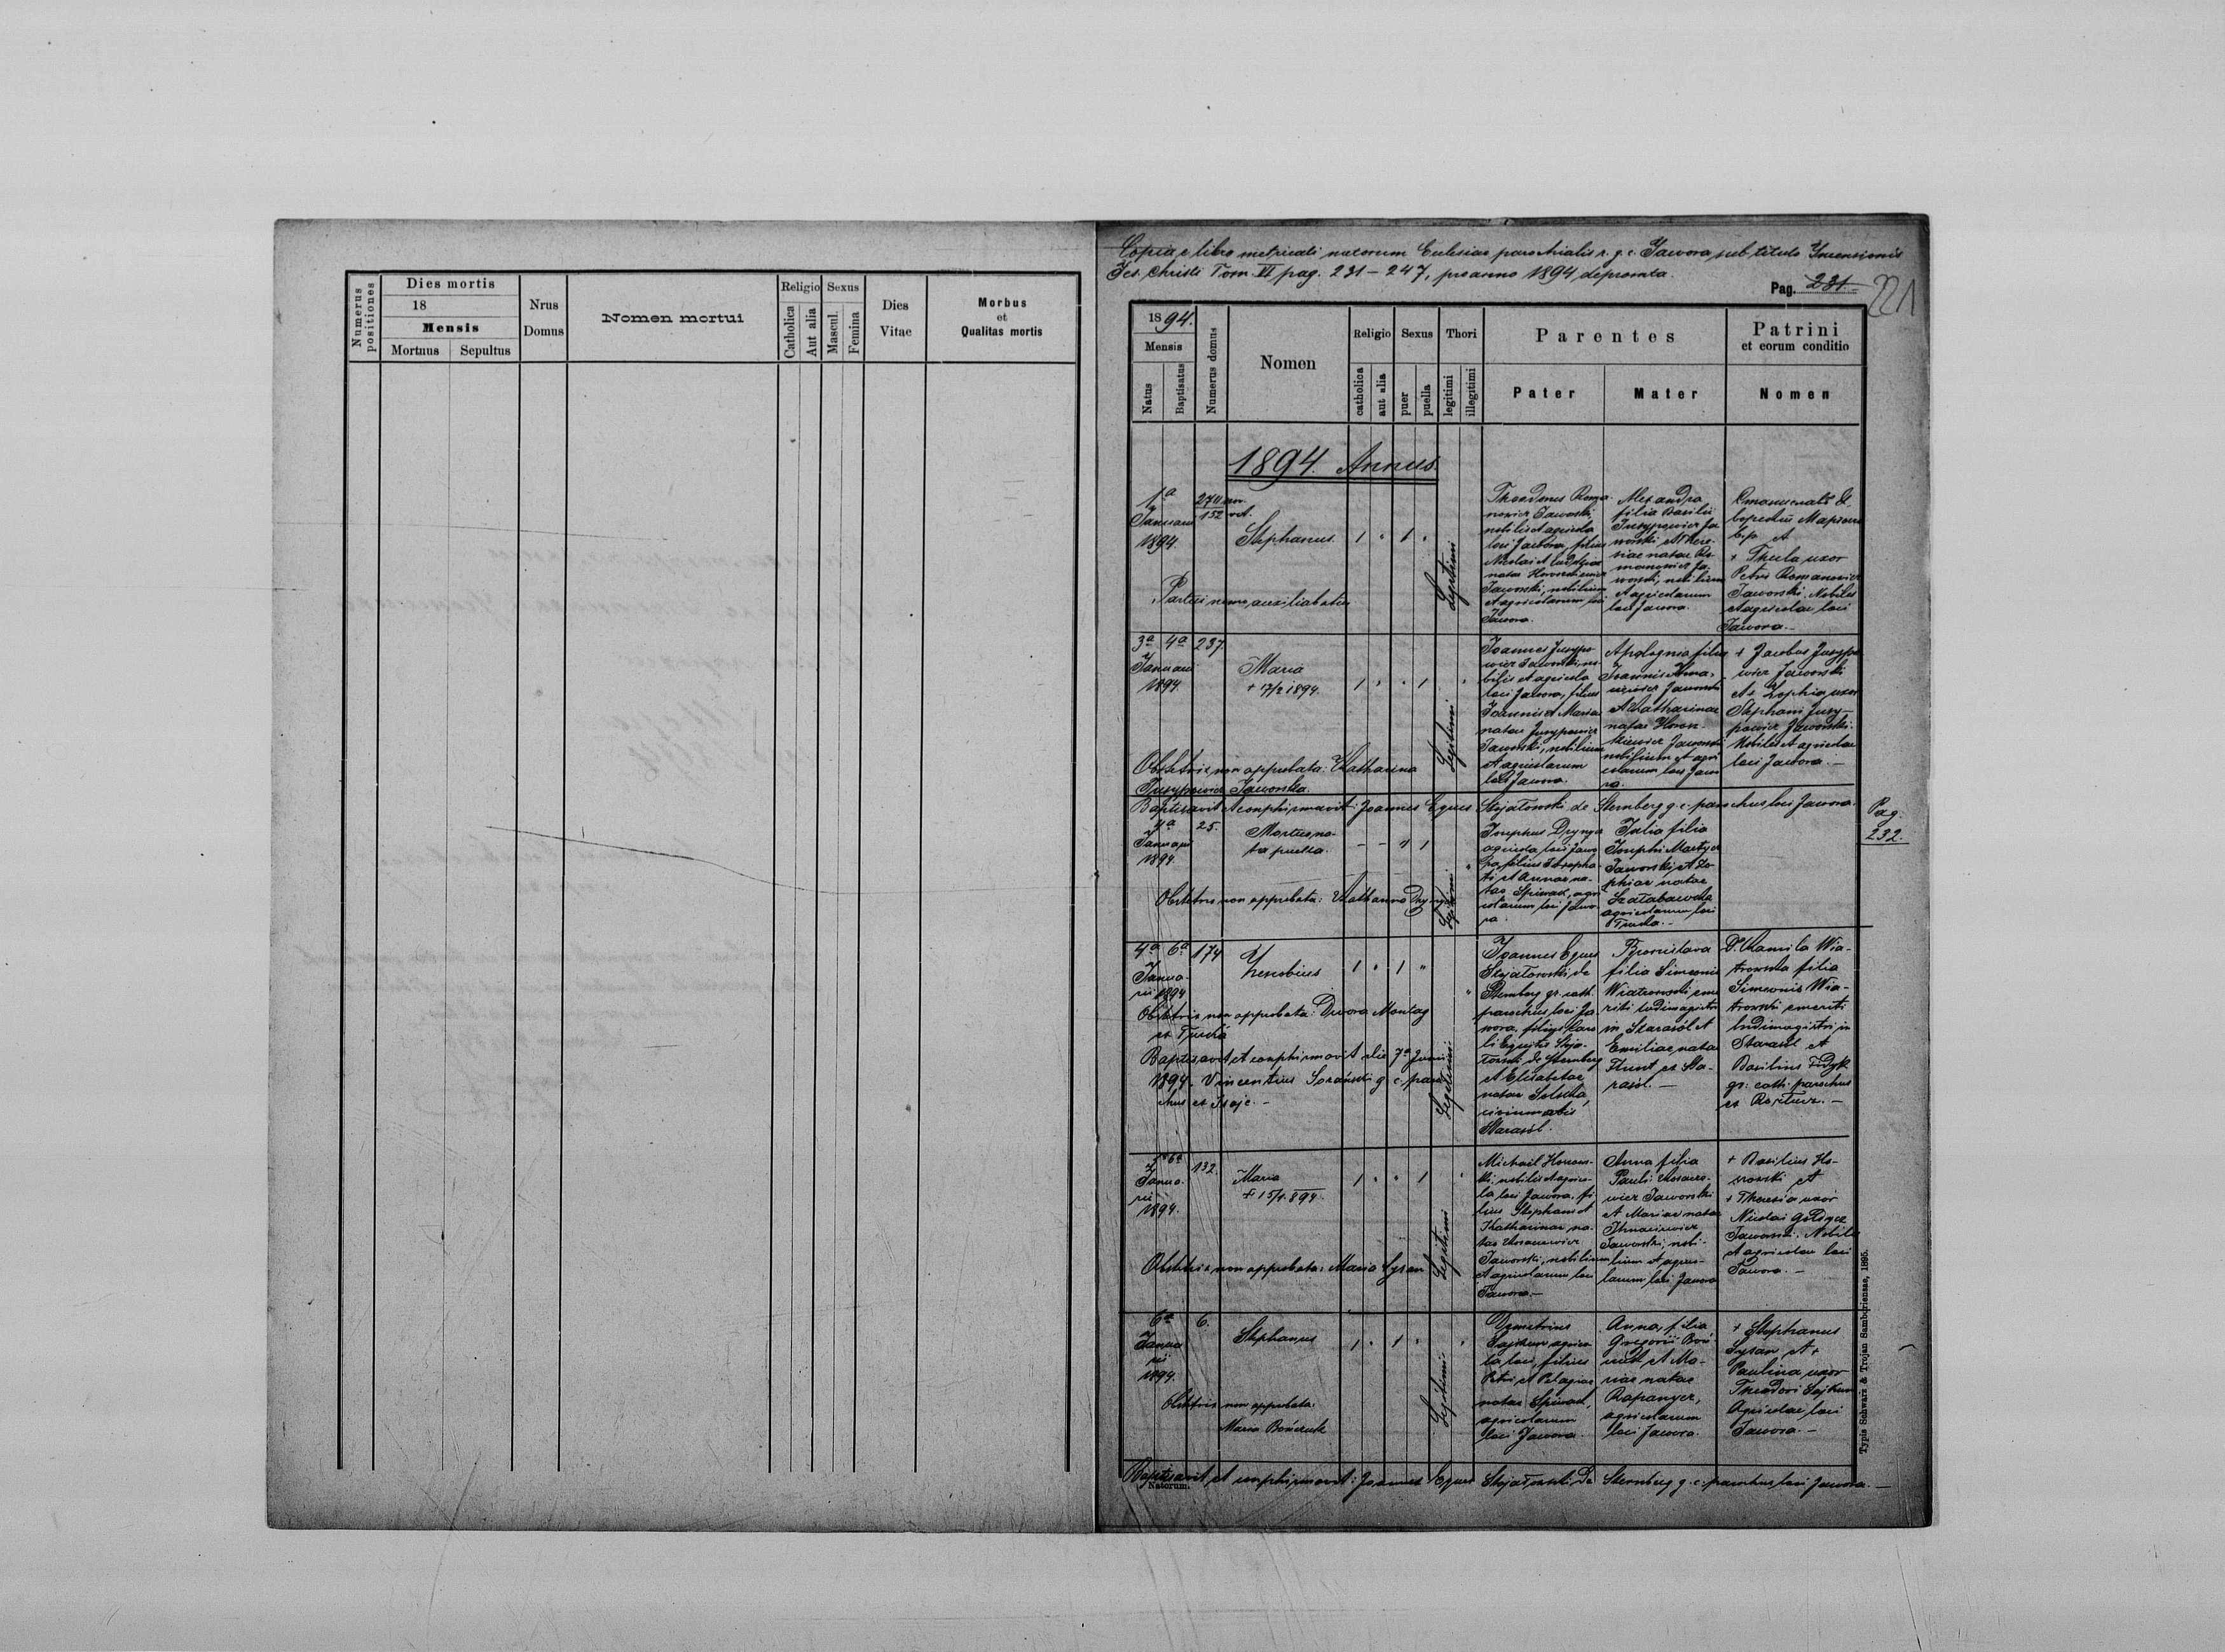 Numerus positiones
Dies mortis
18
Mensis
Mortuus Sepultus
Nrus Domus
Nomen mortui
Religio Sexus
Catholica Aut alia Mascul. Femina
Dies Vitae
Morbus
et
Qualitas mortis
Copia e libro metricali natorum Eclesiae parochialis r. g. c. Jawora sub titulo
Jes. Christi Tom. VI pag. 231 – 247, pro anno 1894 depromta.
Pag. 231.
221
1894.
Mensis
Natus Baptisatus
Numerus domus
Nomen
Religio Sexus Thori
catholica aut alia puer puella legitimi illegitimi
Parentes
Pater Mater
Patrini
et eorum conditio
Nomen
1894. Annus.
1a
Januarii
1894.
152
Stephanus.
1 " 1 "
Legitimi
nobilis et agricola
loci Jawora, filius
Jaworski, nobilium
et agricolarum loci
Jawora.
Alexandra
filia Basilii
Jusypowicz Ja
worski et There-
siae natae Ro-
manowicz Ja-
worski, nobilium
et agricolarum
loci Jawora.
+ Thecla uxor
Petri Romanowicz
Jaworski. Nobiles
et agricolae loci
Jawora.–
3a 4a 237.
Januarii
1894.
Maria
+ 17/2 1894.
1 " " 1
Legitimi
Joannes Jusypo
wicz Jaworski, no
bilis et agricola
loci Jawora, filius
Joannis et Mariae
natae Jusypowicz
Jaworski, nobilium
et agricolarum
loci Jawora.
Apolonia filia
Joannis
Jaworski
et Katharinae
natae
Jaworski
nobilium et agri
colarum loci Jawo
ra.
+ Jacobus Jusypo
wicz Jaworski
et + Zophia uxor
Stephani Jusy-
powicz Jaworski.
Nobiles et agricolae
loci Jawora.–
Obstetrix non approbata: Katharina
Jusypowicz Jaworska.
Baptisavit et conphirmavit: Joannes Eques Stojałowski de Sternberg g. c. parochus loci Jawora.
Pag.
232.
4a 25.
Januarii
1894
Mortua na-
ta puella.
– – " 1
Legitimi
Josephus Drynga
agricola loci Jawo
ra, filius
et Annae na-
tae Spiwak, agri
colarum loci Jawo
ra.
Julia filia
Josephi Martycz
Jaworski et Zo-
phiae natae
agricolarum loci
Turka.–
Obstetrix non approbata: Katharina Drynga
4a 6a 174
Janua-
rii 1894
Zenobius
1 " 1 "
Legitimi
Joannes Eques
Stojałowski de
Sternberg gr. cath.
parochus loci Ja
wora, filius Caro
li Equitis Stoja
łowski de Sternberg
et Elisabetae
natae
Starasól.
Bronislava
filia Simeonis
Wiatrowski eme
riti ludimagistri
in Starasól et
Emiliae natae
ex Sta-
rasól.–
Da. Kamila Wia-
trowska filia
Simeonis Wia-
trowski emeriti
ludimagistri in
Starasól et
Basilius Fidyk
gr: cath. parochus
Obstetrix non approbata: Dwora Montag
ex Turka
Baptisavit et conphirmavit die 7a Junii
1894. Vincentius g. c. paro
chus ex Isaje.–
5a 6a 132.
Janua-
rii
1894.
Maria
+ 15/1. 894.
1 " " 1
Legitimi
Michael
nobilis et agrico-
la loci Jawora, fi
lius Stephani et
Katharinae na-
tae
Jaworski, nobilium
et agricolarum loci
Jawora.–
Anna filia
Pauli
Jaworski
et Mariae natae
Jaworski, nobi-
lium et agrico-
larum loci Jawora
+ Basilius
et
+ Theresia uxor
Nicolai
Jaworski. Nobiles
et agricolae loci
Jawora.–
Obstetrix non approbata: Maria Łysan
6a 6.
Janua
rii
1894.
Stephanus
1 " 1 "
Legitimi
Demetrius
Sajkun agrico
la loci, filius
Petri et Pelagiae
natae Spiwak,
agricolarum
loci Jawora.
Anna, filia
Gregorii Boń-
czuk et Ma-
riae natae
agricolarum
loci Jawora.
+ Stephanus
Łysan et +
Paulina uxor
Theodori Sajkun
Agricolae loci
Jawora.–
Obstetrix non approbata:
Maria Bończuk
Baptisavit et conphirmavit: Joannes Eques Stojałowski de Sternberg g. c. parochus loci Jawora.–
Natorum.
Typis Schwarz & Trojan Samboriensae, 1895.